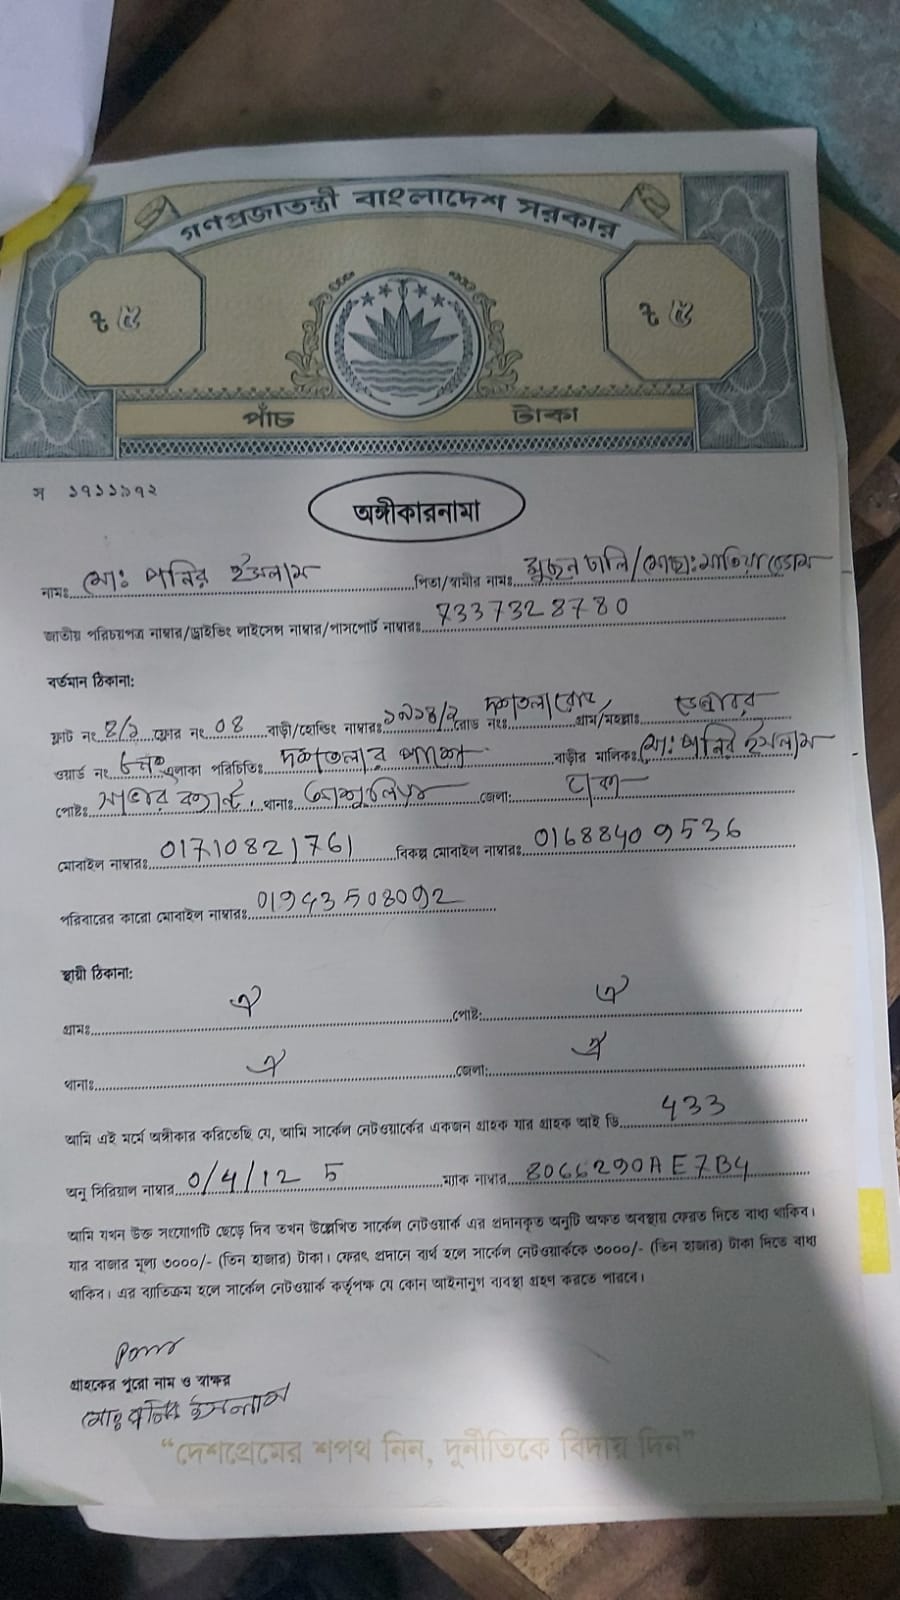 গণপ্রজাতন্ত্রী বাংলাদেশ সরকার
৳ ৫ ৳ ৫
পাঁচ টাকা
স ১৭১১৯৭২
অঙ্গীকারনামা
নামঃ মোঃ পনির ইসলাম পিতা/স্বামীর নামঃ
জাতীয় পরিচয়পত্র নাম্বার/ড্রাইভিং লাইসেন্স নাম্বার/পাসপোর্ট নাম্বারঃ 7337328780
বর্তমান ঠিকানা:
ফ্লাট নং ফ্লোর নং 04 বাড়ী/হোল্ডিং নাম্বারঃ রোড নং গ্রাম/মহল্লাঃ
ওয়ার্ড নং এলাকা পরিচিতিঃ বাড়ীর মালিকঃ মোঃ পনির ইসলাম
পোষ্টঃ থানাঃ জেলা: ঢাকা
মোবাইল নাম্বারঃ 01710821761 বিকল্প মোবাইল নাম্বারঃ 01688409536
পরিবারের কারো মোবাইল নাম্বারঃ 01943508092
স্থায়ী ঠিকানা:
গ্রামঃ ঐ পোষ্ট: ঐ
থানাঃ ঐ জেলা: ঐ
আমি এই মর্মে অঙ্গীকার করিতেছি যে, আমি সার্কেল নেটওয়ার্কের একজন গ্রাহক যার গ্রাহক আই ডি 433
অনু সিরিয়াল নাম্বার 0/4/12 5 ম্যাক নাম্বার 8066290AE7B4
আমি যখন উক্ত সংযোগটি ছেড়ে দিব তখন উল্লেখিত সার্কেল নেটওয়ার্ক এর প্রদানকৃত অনুটি অক্ষত অবস্থায় ফেরত দিতে বাধ্য থাকিব।
যার বাজার মূল্য ৩০০০/- (তিন হাজার) টাকা। ফেরৎ প্রদানে ব্যর্থ হলে সার্কেল নেটওয়ার্ককে ৩০০০/- (তিন হাজার) টাকা দিতে বাধ্য
থাকিব। এর ব্যতিক্রম হলে সার্কেল নেটওয়ার্ক কর্তৃপক্ষ যে কোন আইনানুগ ব্যবস্থা গ্রহণ করতে পারবে।
গ্রাহকের পুরো নাম ও স্বাক্ষর
মোঃ পনির ইসলাম
“দেশপ্রেমের শপথ নিন, দুর্নীতিকে বিদায় দিন”